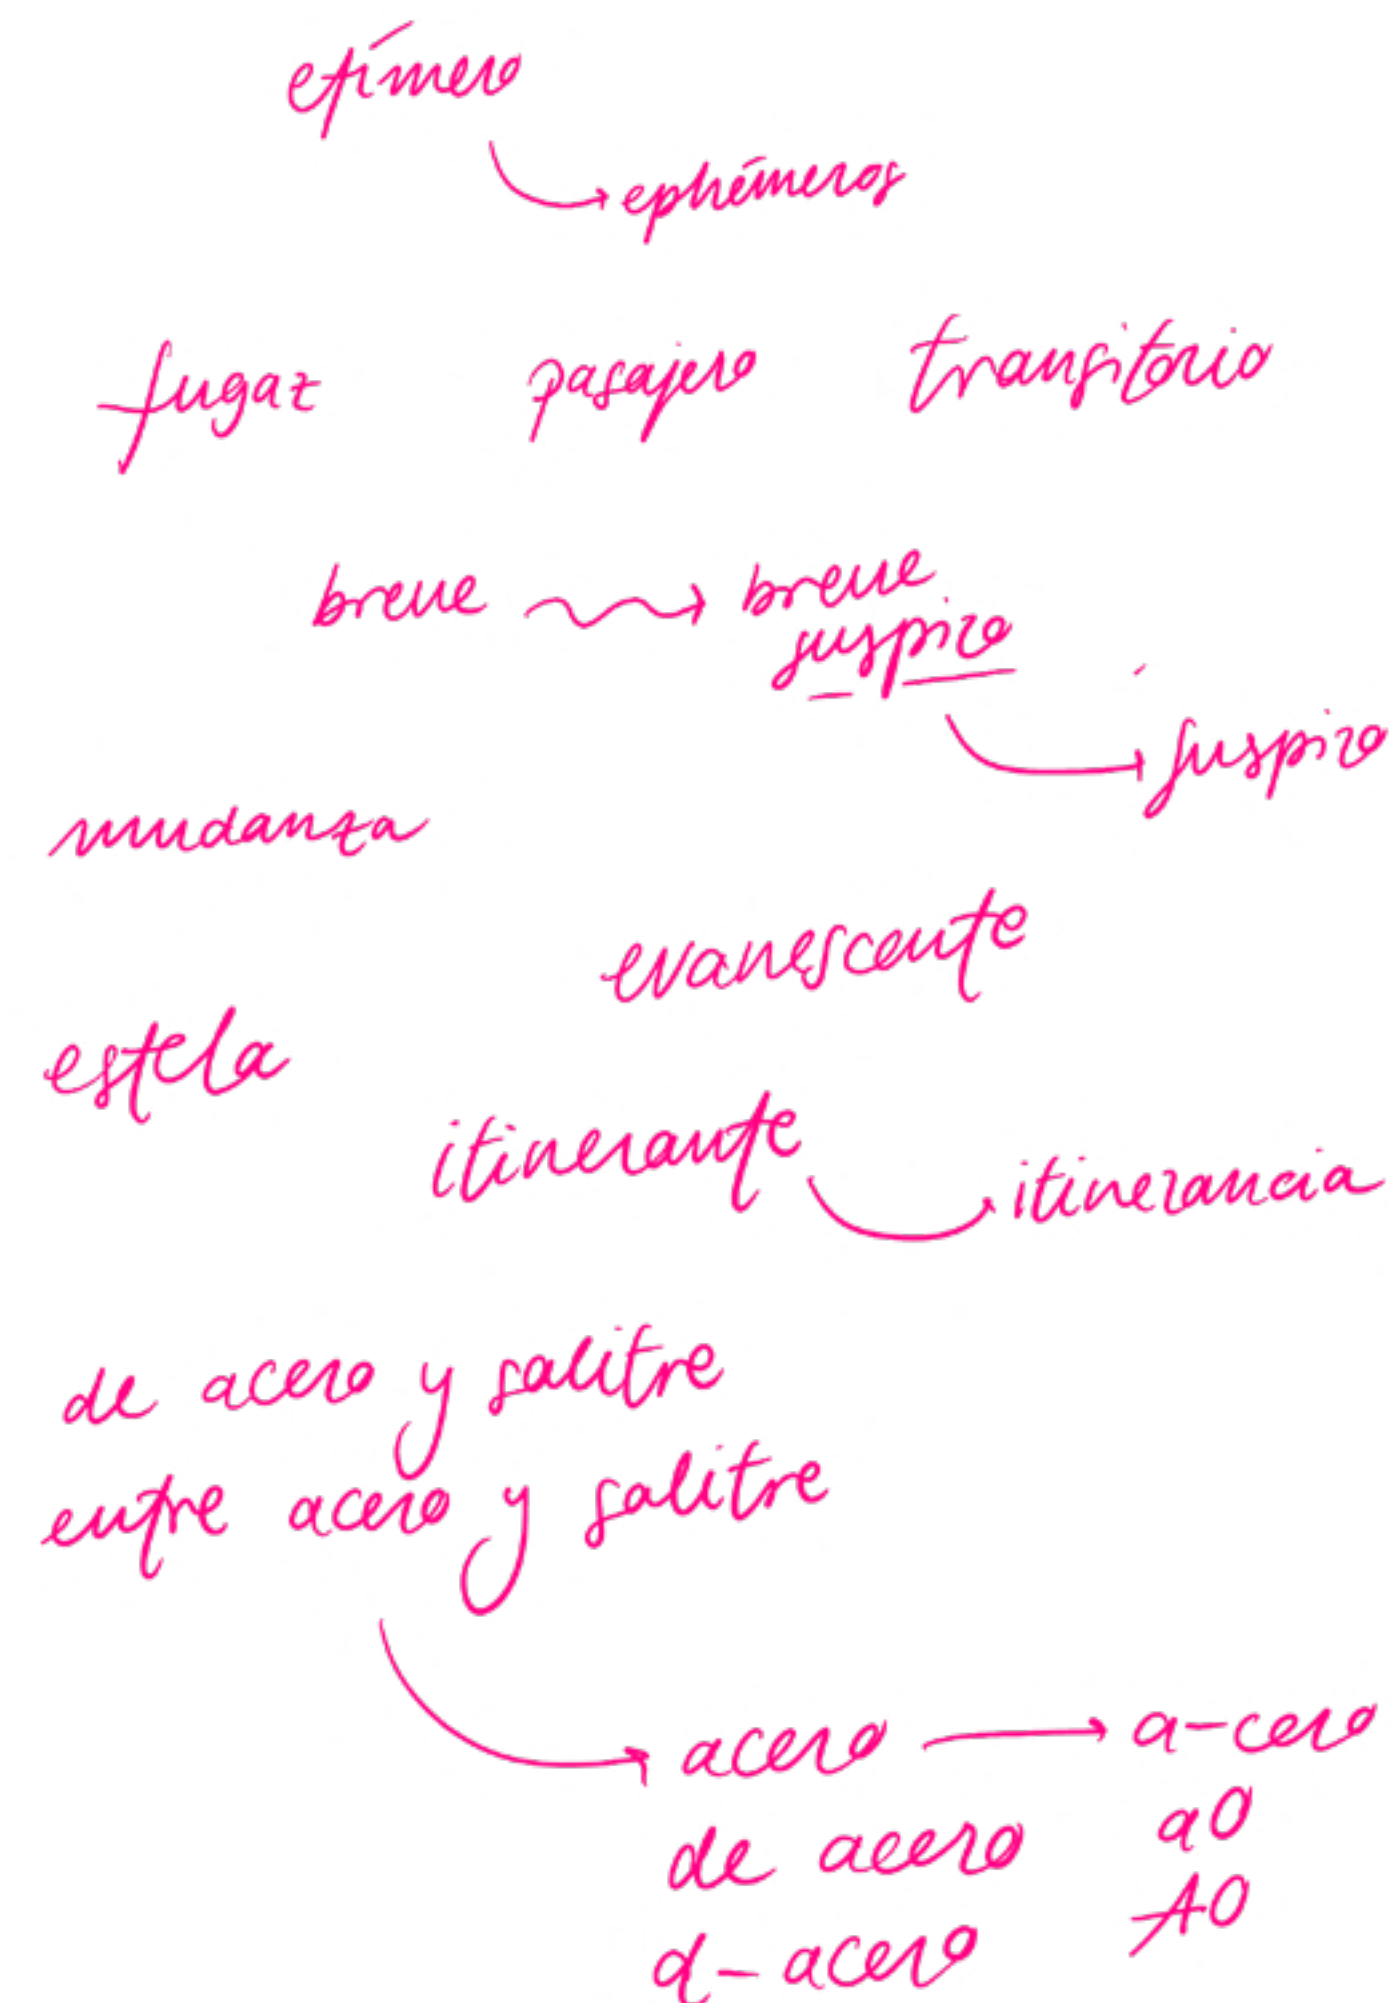 efímero
ephémeros
fugaz pasajero transitorio
breve breve
suspiro
suspiro
mudanza
evanescente
estela
itinerante
itinerancia
de acero y salitre
entre acero y salitre
acero a-cero
de acero a0
d-acero A0